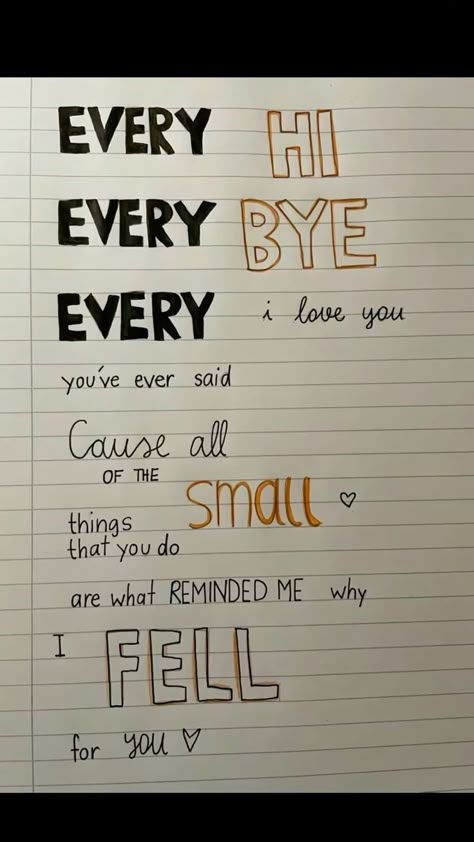 EVERY HI
EVERY BYE
EVERY i love you
you've ever said
Cause all
OF THE
small
things
that you do
are what REMINDED ME why
I FELL
for you